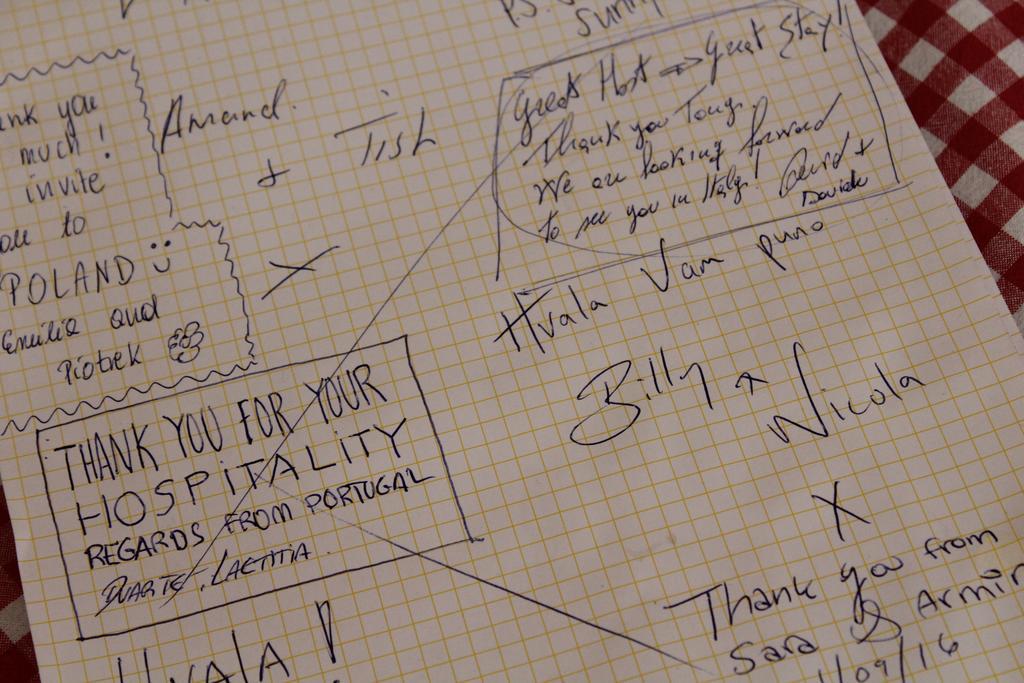 P.S.
Sunny
Great Host => Great Stay!
Thank you Tony.
We are looking forward
to see you in Italy! David +
Davide
Amand.
+
Tish
X
ank you
much!
invite
to
POLAND :)
Emilia and
Piotrek
Hvala Vam puno
Billy + Nicola
X
THANK YOU FOR YOUR
HOSPITALITY
REGARDS FROM PORTUGAL
DUARTE, LAETITIA.
HVALA
Thank you from
Sara & Armin
/09/16